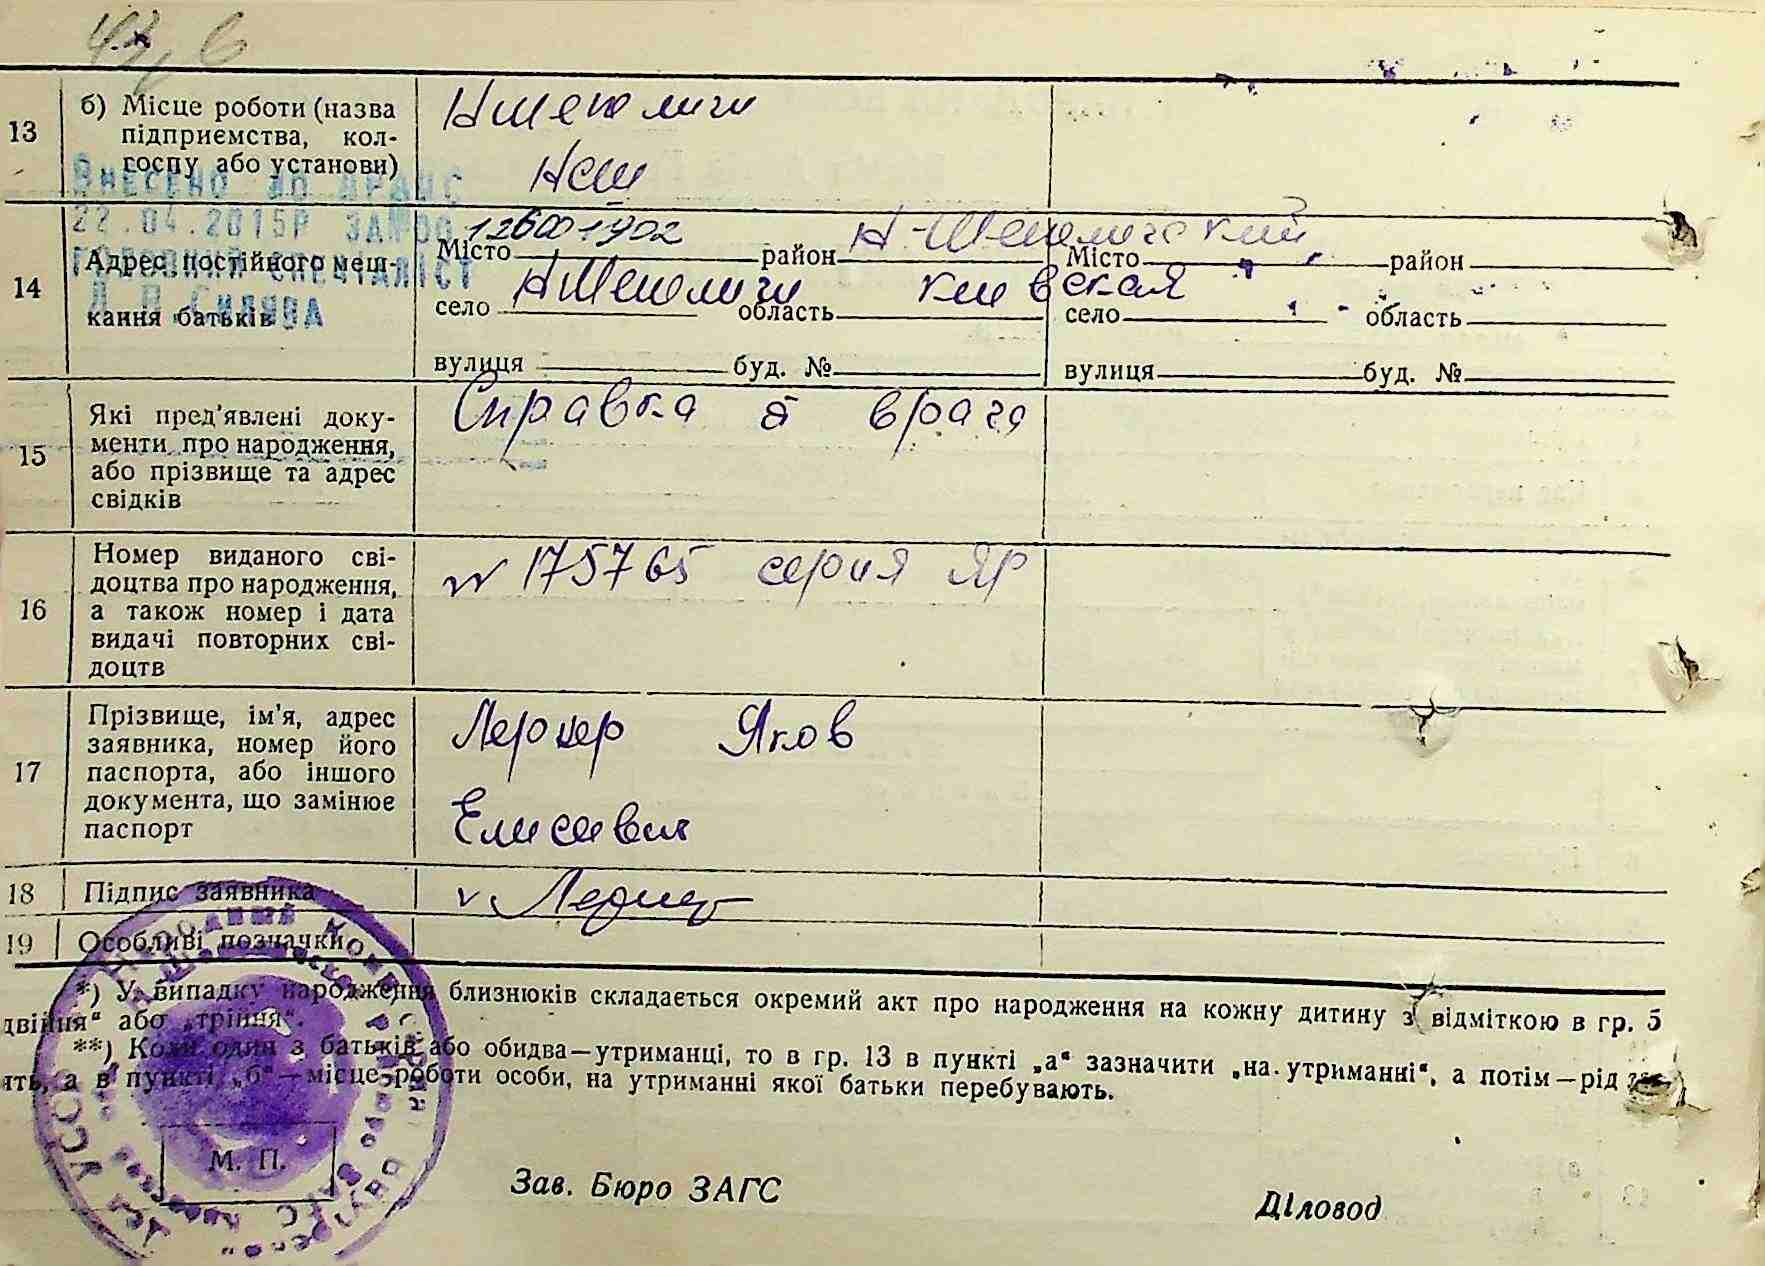 13
б) Місце роботи (назва
підприємства, кол-
госпу або установи)
НШепеличи
НСШ
ВНЕСЕНО ДО ДРАЦС
22.04.2015Р ЗА №00
126001902
ГОЛОВНИЙ СПЕЦІАЛІСТ
14
Адрес постійного меш-
кання батьків
Місто район Н-Шепеличский Місто район
село НШепеличи область киевская село область
вулиця буд. № вулиця буд. №
15
Які пред'явлені доку-
менти про народження,
або прізвище та адрес
свідків
Справка врача
16
Номер виданого сві-
доцтва про народження,
а також номер і дата
видачі повторних сві-
доцтв
№ 175765 серия ЯР
17
Прізвище, ім'я, адрес
заявника, номер його
паспорта, або іншого
документа, що замінює
паспорт
Лернер Яков
Елисеевич
18 Підпис заявника v Лернер
19 Особливі позначки
*) У випадку народження близнюків складається окремий акт про народження на кожну дитину з відміткою в гр. 5
двійня" або „трійня".
**) Коли один з батьків або обидва—утриманці, то в гр. 13 в пункті „а" зазначити „на утриманні", а потім—рід
ять, а в пункті „б"—місце роботи особи, на утриманні якої батьки перебувають.
М. П.
Зав. Бюро ЗАГС
Діловод